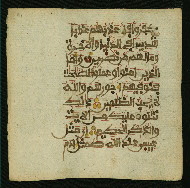 كفروا فأعذبهم عذابا
شديدا في الدنيا والآخرة
وما لهم من نصرين وأما
الذين ءامنوا وعملوا الصلحت
فنوفيهم أجورهم والله
لا يحب الظلمين ذلك
نتلوه عليك من الأيت
والذكر الحكيم إن مثل
عيسى عند الله كمثل ءادم